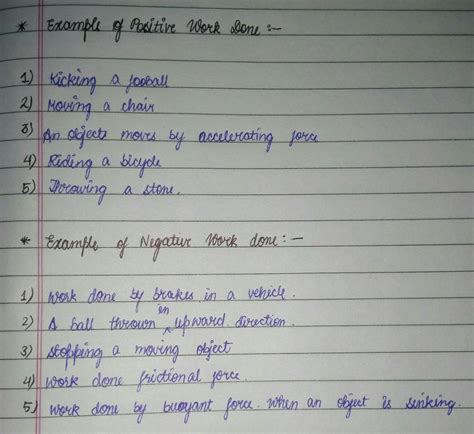 * Example of Positive Work Done :-
1) Kicking a fooball
2) Moving a chair
3) An objects moves by accelerating force
4) Riding a bicycle
5) Throwing a stone.
* Example of Negative Work done :-
1) Work done by brakes in a vehicle.
2) A ball thrown in upward direction.
3) Stopping a moving object
4) Work done frictional force.
5) Work done by buoyant force. When an object is sinking.